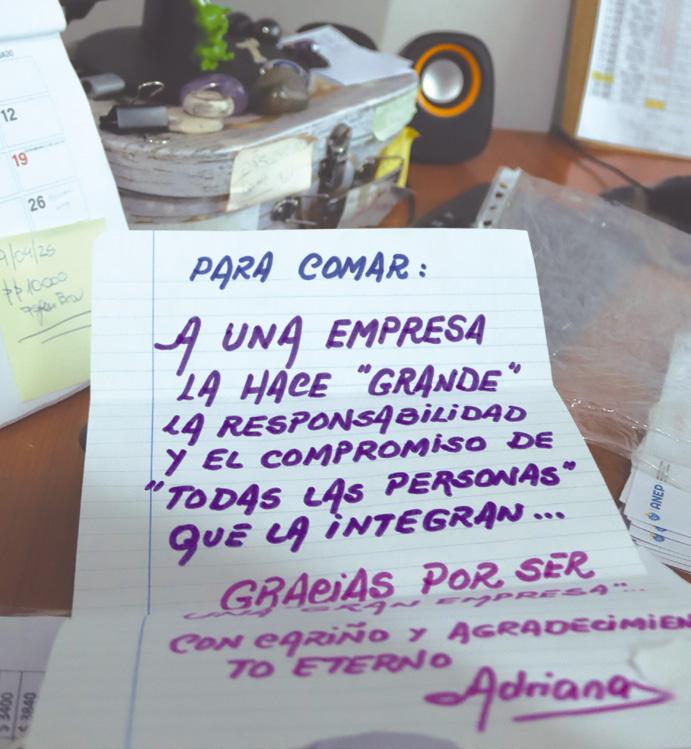 12
19
26
PARA COMAR:
A UNA EMPRESA
LA HACE "GRANDE"
LA RESPONSABILIDAD
Y EL COMPROMISO DE
"TODAS LAS PERSONAS"
QUE LA INTEGRAN...
GRACIAS POR SER
UNA GRAN EMPRESA"...
CON CARIÑO Y AGRADECIMIEN
TO ETERNO
Adriana
ANEP
$ 3400
$ 3840